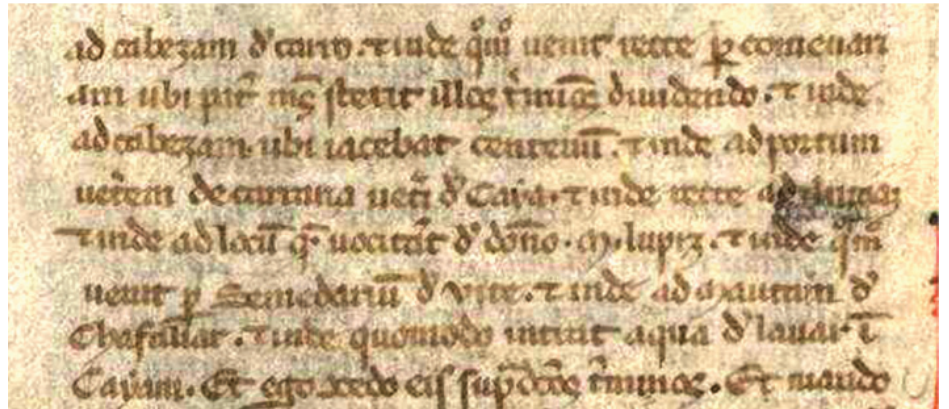 ad cabezam d' cauto. ⁊ inde q̊m̊ uenit recte ꝑ comeuam
am ubi pat̃ m̃s stetit illos t̃minos diuidendo. ⁊ inde
ad cabezam ubi iacebat centenũ. ⁊ inde ad portum
uet̃em de carraria uet̃i d' Caya. ⁊ inde recte ad
⁊ inde ad locũ q̃ uocitãt d' dõno. M. lupiz. ⁊ inde q̊m̃
uenit ꝑ Semedariũ d' . ⁊ inde ad d'
Chafallat. ⁊ inde quomodo intrat aqua d' lauar ĩ
Cayam. Et ego cõcedo eis sup̃dc̃os t̃minos. Et mando